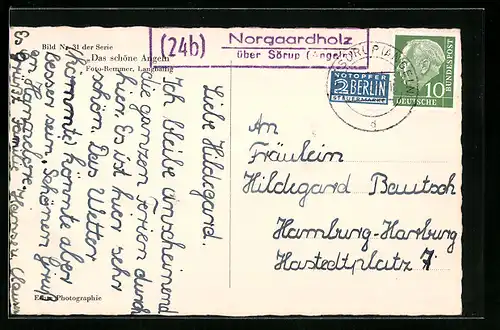 Bild Nr. 31 der Serie
„Das schöne Angeln“
Foto-Remmer, Langballig
(24b)
Norgaardholz
über Sörup (Angeln)
SÖRUP (ANGELN)
NOTOPFER
2 BERLIN
STEUERMARKE
10
DEUTSCHE
BUNDESPOST
d
An
Fräulein
Hildegard Bautsch
Hamburg-Harburg
Hastedtplatz 7
Liebe Hildegard.
Ich bleibe anscheinend
die ganzen Ferien durch
hier. Es ist hier sehr
schön. Das Wetter
(könnte) könnte aber
besser sein. Schönen Gruß
von Hannelore.
Es grüßt Familie Hansen
Echte Photographie